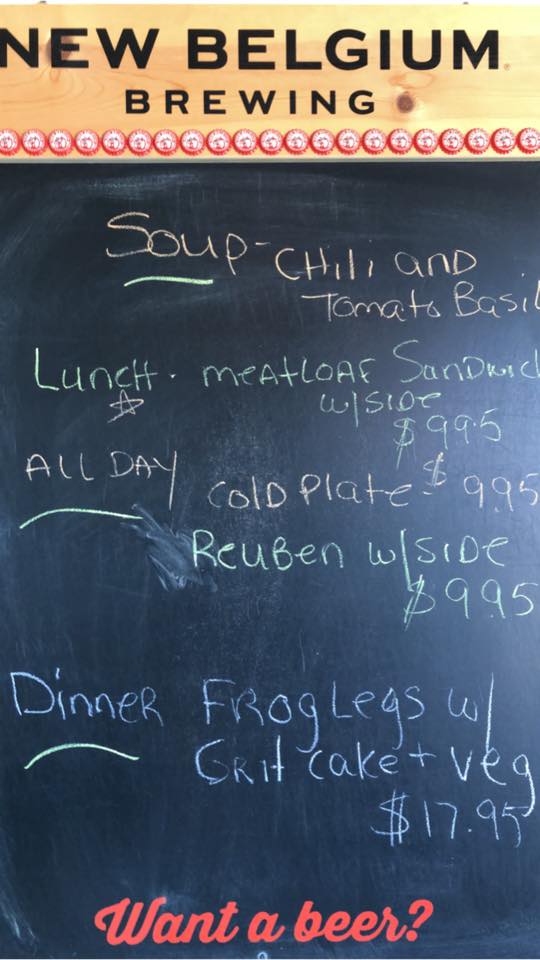 NEW BELGIUM
BREWING
Soup - CHili and
Tomato Basil
Lunch - meatloaf Sandwic
w/side
$995
ALL DAY
Cold Plate - $995
Reuben w/side
$995
Dinner Frog Legs w/
Grit cake + veg
$17.95
Want a beer?